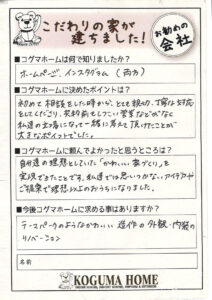 こだわりの家が
建ちました!
お勧めの
会社
■コグマホームは何で知りましたか?
ホームページ、インスタグラム（両方）
■コグマホームに決めたポイントは?
初めて相談をした時から、とても親切、丁寧な対応
をしてくださり、契約前もしつこい営業などがなく
私達の立場になって一緒に考えて頂けたことが
大きなポイントでした。
■コグマホームに頼んでよかったと思うところは?
自分達の理想としていた「かわいい家づくり」を
実現できたことです。私達では思いつかないアイデアや
ご提案で理想以上のおうちになりました。
■今後コグマホームに求める事はありますか?
テーマパークのようなかわいい造作の外観・内装の
リノベーション
名前
KOGUMA HOME